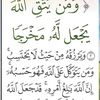 وَمَن يَتَّقِ ٱللَّهَ
يَجْعَل لَّهُۥ مَخْرَجًا
وَيَرْزُقْهُ مِنْ حَيْثُ لَا يَحْتَسِبُ
وَمَن يَتَوَكَّلْ عَلَى ٱللَّهِ فَهُوَ حَسْبُهُۥٓ
إِنَّ ٱللَّهَ بَٰلِغُ أَمْرِهِۦ قَدْ جَعَلَ ٱللَّهُ